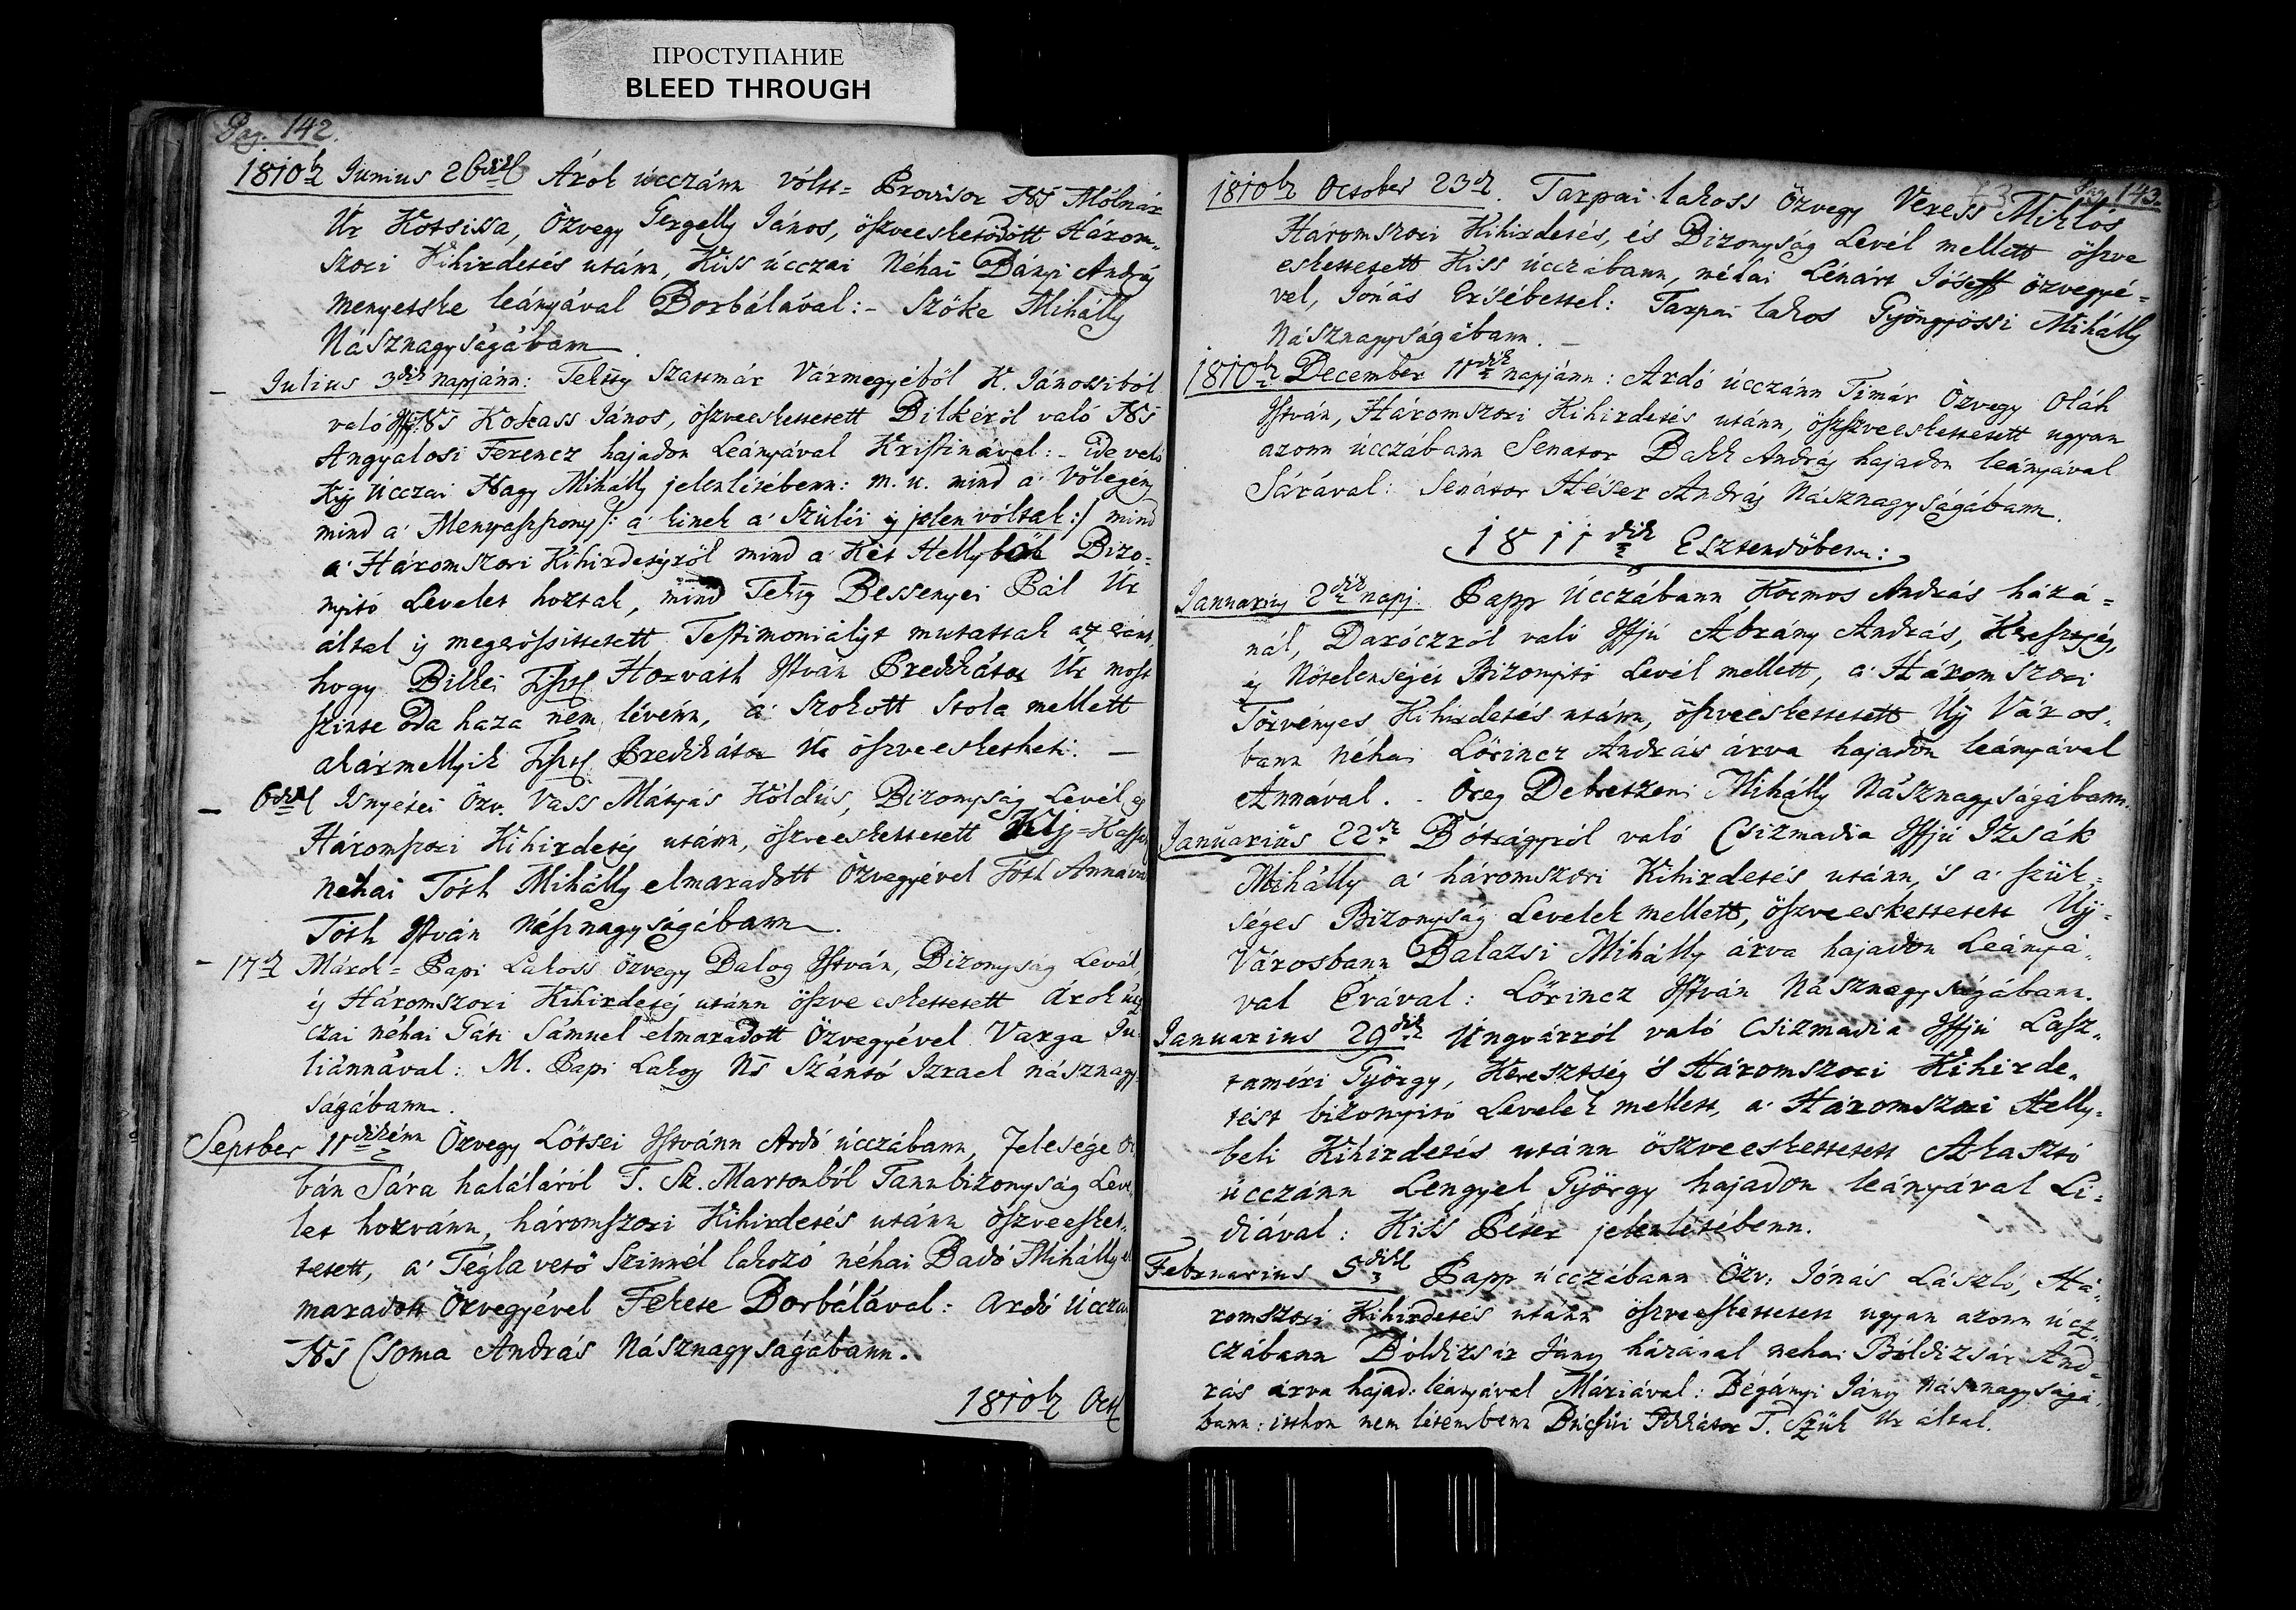 ПРОСТУПАНИЕ
BLEED THROUGH
Pag. 142.
1810b Junius 26dik Árok úcczánn vólt= Provisor Ns Mólnár
Úr Kotsissa, Özvegy Gergelly János, öszveesketődött Három-
szori Kihirdetés utánn, Kiss úcczai Néhai Bányi András
menyetske leányával Borbálával:- Szöke Mihálly
Násznagyságábann.
– Julius 3dik napjánn: Tekttes Szattmár Vármegyéböl K. Jánossiból
való Ns Kokass János, öszveeskettetett Bilkéröl való Ns
Angyalosi Ferencz hajadon Leányával Kristinával:- Ide való
Kis Úcczai Nagy Mihálly jelenlétébenn: m.u. mind a' Völegény
mind a' Menyasszony /: a' kinek a' Szüléi is jelen vóltak:/ mind
a' Háromszori Kihirdetésröl mind a' Két Hellyböl Bizo-
nyitó Levelet hoztak, mind Bessenyei Pál Úr
által is megerössittetett Testimoniálist mutattak az eránt,
hogy Bilkei Horváth István Predikátor Úr most
szinte oda haza nem lévénn, a' szokott Stóla mellett
akármellyik Predikátor Úr öszveesketheti. –
– 6dik Isnyétei Özv. Vass Mátyás Kóldús, Bizonyság Levél és
Háromszori Kihirdetés utánn, öszveeskettetett
néhai Tóth Mihálly elmaradott Özvegyével Tóth Annával
Tóth István Násznagyságábann.
– 17d Márok= Papi Lakoss Özvegy Balog István, Bizonyság Levél,
és Háromszori Kihirdetés utánn öszve eskettetett Árok úcz
czai néhai Gáti Sámuel elmaradott Özvegyével Varga Ju-
liánnával: M. Papi Lakos Ns Szántó Izrael násznagy-
ságábann.
September 11dikénn Özvegy Lötsei Istvánn Ardó úcczábann, Felesége Or
bán Sára haláláról T. Sz. Martonból Tannbizonyság Leve-
let hozvánn, háromszori Kihirdetés utánn öszveesket-
tetett, a' Tégla vető Szinnél lakozó néhai Badó Mihálly el
maradott Özvegyével Fekete Borbálával: Ardó Úcczai
Ns Csoma András Násznagyságábann.
1810b Oct
Pag. 143.
1810b October 23d. Tarpai lakoss Özvegy Veress Miklós
Háromszori Kihirdetés, és Bizonyság Levél mellett öszve
eskettetett Kiss úcczábann, néhai Lénárt Jóseff özvegyé=
vel, Jónás Ersébettel: Tarpai lakos Gyöngyössi Mihálly
Násznagyságábann. –
1810b December 11dik napjánn: Ardó úcczánn Timár Özvegy Oláh
István, Háromszori Kihirdetés utánn, öszszveeskettetett ugyan
azonn úcczábann Senator Bakk András hajadon leányával
Sárával: Senátor Héser András Násznagyságábann.
1811dik Esztendőbenn:
Januarius 2dik napj. Papp Úcczábann Kormos András házá=
nál, Daróczról való Ifjú Ábrány András, Keresztség,
és Nötelenségét Bizonyitó Levél mellett, a' Három szori
Törvényes Kihirdetés utánn, öszveeskettetett Új Város-
bann néhai Lörincz András árva hajadon leányával
Annával. - Öreg Debretzeni Mihálly Násznagyságábann.
Januariús 22d Bótrágyról való Csizmadia Ifjú Izsák
Mihálly a' háromszori Kihirdetés utánn, 's a' szük=
séges Bizonyság Levelek mellett, öszveeskettetett Uj-
Városbann Balazsi Mihálly árva hajadon Leányá-
val Évával: Lörincz István Násznagyságábann.
Januarius 29dik Ungvárról való Csizmadia Ifjú Lasz-
taméri György, Keresztség 's Háromszori Kihirde-
tést bizonyitó Levelek mellett, a' Háromszori Helly=
beli Kihirdetés utánn öszveeskettetett Akasztó
úcczánn Lengyel György hajadon leányával Li=
diával: Kiss Péter jelenlétébenn.
Februarius 5dik Papp úcczábann Özv. Jónás László, Há-
romszori Kihirdetés utánn öszveeskettetett ugyan azonn úcz-
czábann Bóldizsár János házánál néhai Bóldizsár And-
rás árva hajad: leányával Máriával: Dégányi János Násznagyságá-
bann: itthon nem létembenn T. Szük Úr által.